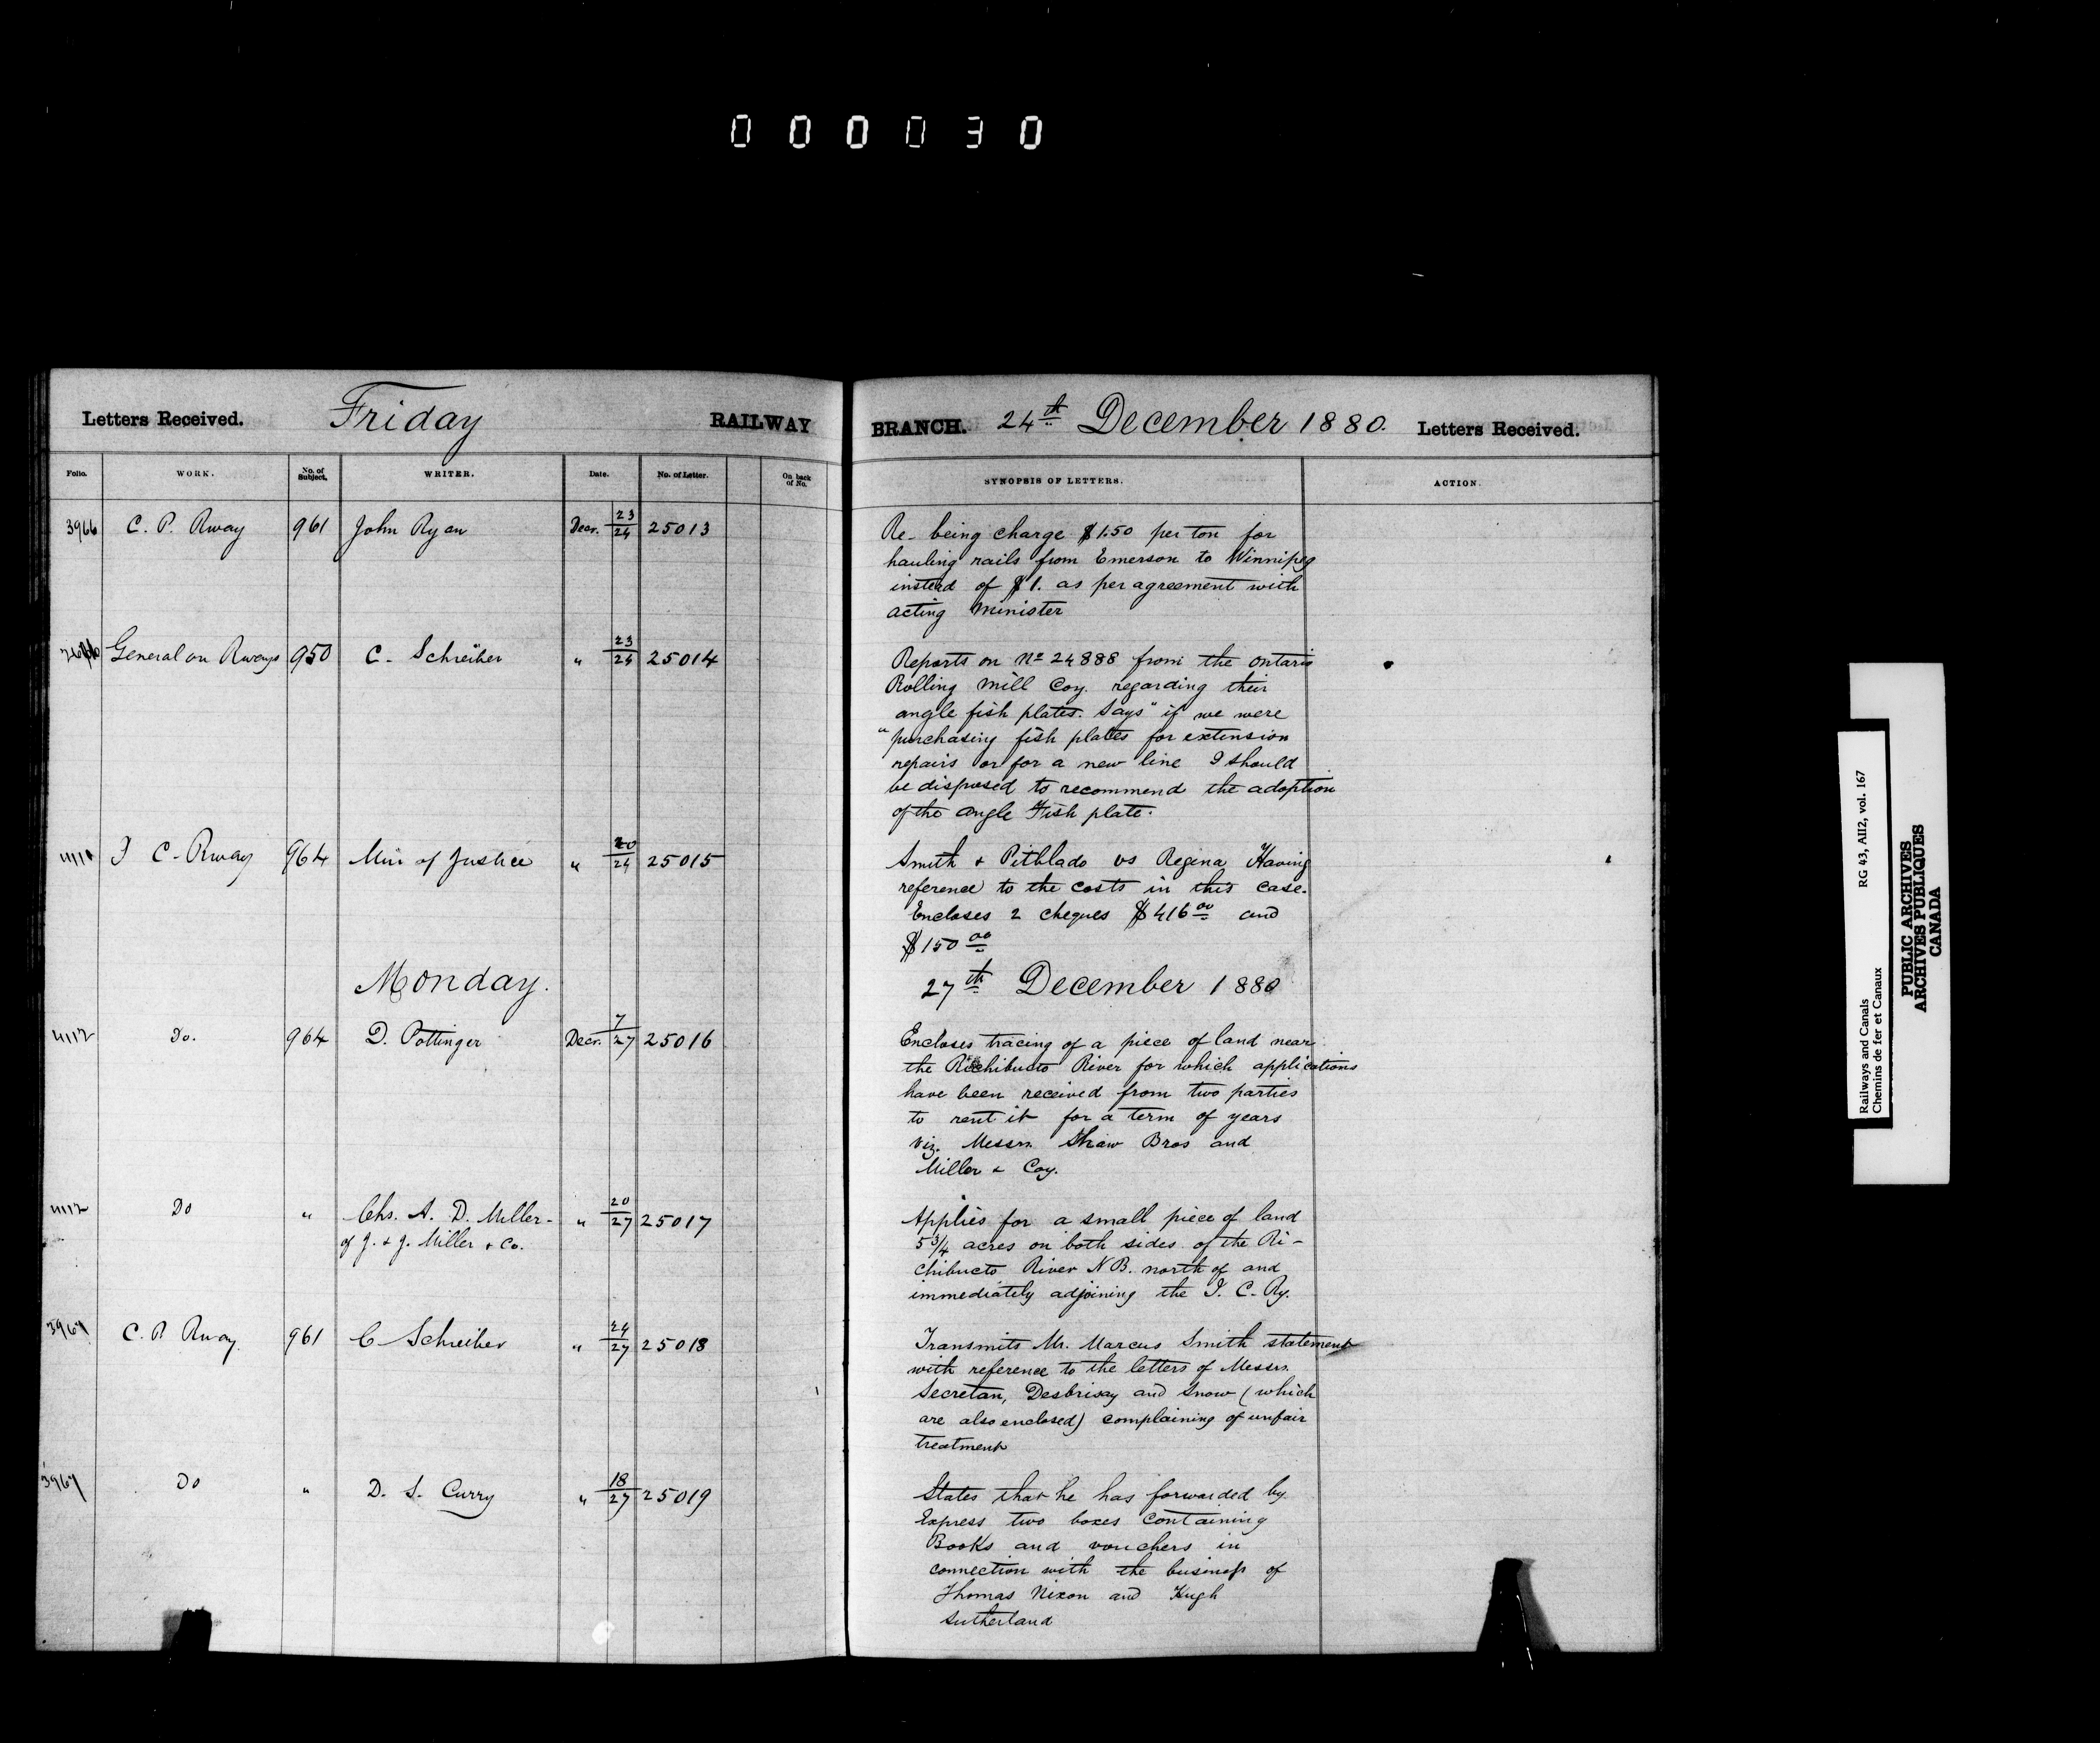 0 0 0 0 3 0
Letters Received. Friday RAILWAY BRANCH. 24th December 1880. Letters Received.
Folio. WORK. No. of Subject. WRITER. Date. No. of Letter. On back of No. SYNOPSIS OF LETTERS. ACTION.
3966 C. P. Rway 961 John Ryan Decr. 23/24 25013 Re- being charge $1.50 per ton for
hauling rails from Emerson to Winnipeg
instead of $1. as per agreement with
acting Minister
General on Rways 950 C. Schreiber " 23/24 25014 Reports on No 24888 from the Ontario
Rolling Mill Coy. regarding their
angle fish plates. Says "if we were
"purchasing fish plates for extension
repairs or for a new line I should
be disposed to recommend the adoption
of the angle Fish plate.
I C. Rway 964 Min of Justice " 20/24 25015 Smith & Pithlado vs Regina Having
reference to the costs in this case.
Encloses 2 cheques $416 00 and
$150 00
Monday. 27th December 1880
4112 Do. 964 D. Pottinger Decr. 7/27 25016 Encloses tracing of a piece of land near
the Richibucto River for which applications
have been received from two parties
to rent it for a term of years
viz. Messrs. Shaw Bros and
Miller & Coy.
4112 Do " Chs. A. D. Miller- " 20/27 25017 Applies for a small piece of land
of J. & J. Miller & Co. 5 3/4 acres on both sides of the Ri-
chibucto River N B. north of and
immediately adjoining the I. C. Ry.
3967 C. P. Rway 961 C Schreiber " 24/27 25018 Transmits Mr. Marcus Smith statement
with reference to the letters of Messrs.
Secretan, Desbrisay and Snow (which
are also enclosed) complaining of unfair
treatment
3967 Do " D. S. Curry " 18/27 25019 States that he has forwarded by
Express two boxes containing
Books and vouchers in
connection with the business of
Thomas Nixon and Hugh
Sutherland
Railways and Canals RG 43, AII2, vol. 167
Chemins de fer et Canaux
PUBLIC ARCHIVES
ARCHIVES PUBLIQUES
CANADA